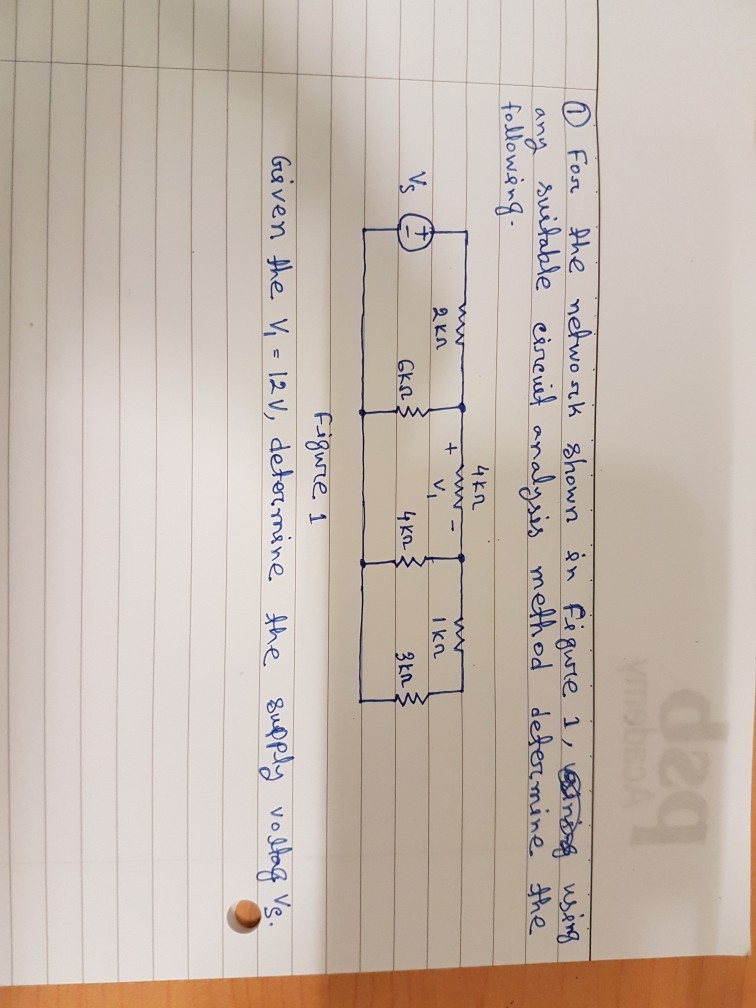 ① For the network shown in figure 1, using
any suitable circuit analysis method determine the
following.
4kΩ
2kΩ
+ V₁ -
1kΩ
Vs
+
-
6kΩ
4kΩ
3kΩ
Figure 1
Given the V₁ = 12V, determine the supply voltag Vs.
psb
Academy